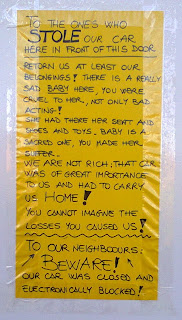 TO THE ONES WHO
STOLE OUR CAR
HERE IN FRONT OF THIS DOOR
RETURN US AT LEAST OUR
BELONGINGS! THERE IS A REALLY
SAD BABY HERE, YOU WERE
CRUEL TO HER, NOT ONLY BAD
ACTING!
SHE HAD THERE HER SEAT AND
SHOES AND TOYS. BABY IS A
SACRED ONE, YOU MADE HER
SUFFER.
WE ARE NOT RICH: THAT CAR
WAS OF GREAT IMPORTANCE
TO US AND HAD TO CARRY
US HOME!
YOU CANNOT IMAGINE THE
LOSSES YOU CAUSED US!
TO OUR NEIGHBOURS:
BEWARE!
OUR CAR WAS CLOSED AND
ELECTRONICALLY BLOCKED!